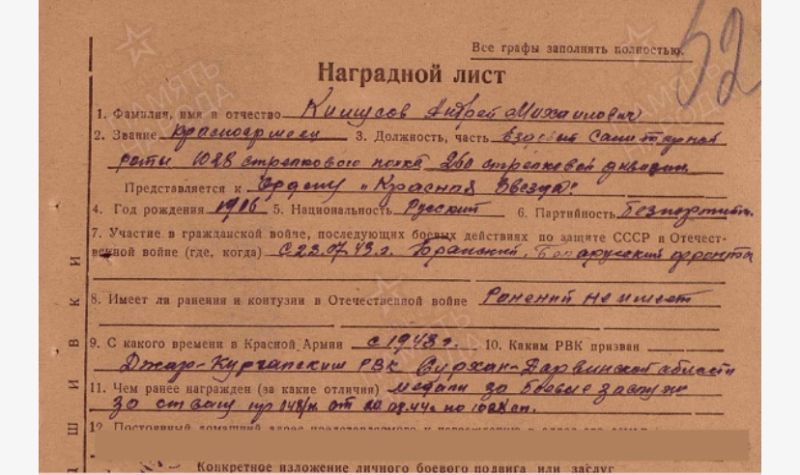 52
Все графы заполнять полностью.
Наградной лист
1. Фамилия, имя и отчество Климусов Андрей Михайлович
2. Звание Красноармеец 3. Должность, часть Ездовый Санитарной
роты 1028 стрелкового полка 260 стрелковой дивизии
Представляется к Ордену "Красная Звезда"
4. Год рождения 1916 5. Национальность Русский 6. Партийность Беспартийн.
7. Участие в гражданской войне, последующих боевых действиях по защите СССР и Отечест-
венной войне (где, когда) с 23.07.43 г. Брянский, Белорусский фронта
8. Имеет ли ранения и контузии в Отечественной войне Ранений не имеет
9. С какого времени в Красной Армии с 1943 г. 10. Каким РВК призван
Джар-Курганским РВК Сурхан-Дарьинской области
11. Чем ранее награжден (за какие отличия) медали за боевые заслуги
за отвагу пр
ШИВКИ
Конкретное изложение личного боевого подвига или заслуг